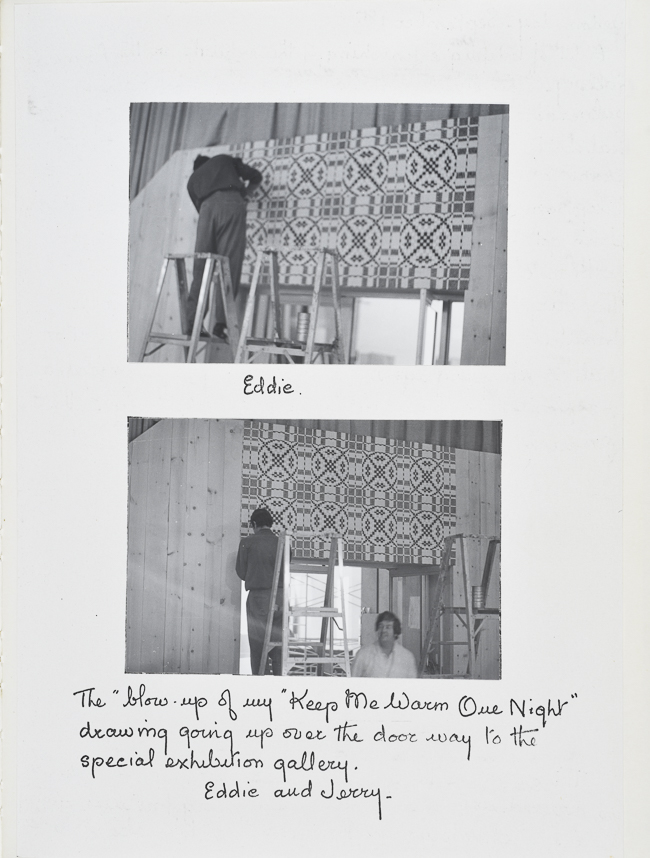 Eddie.
The "blow-up of my "Keep Me Warm One Night"
drawing going up over the door way to the
special exhibition gallery.
Eddie and Jerry-